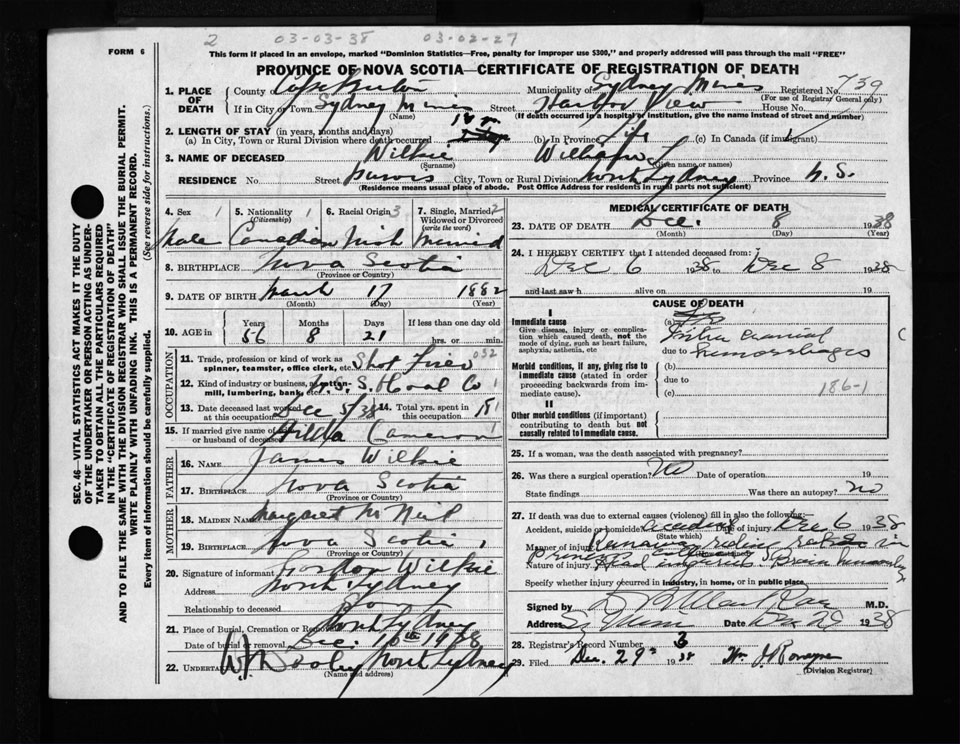 2 03-03-38 03-02-27
FORM 6
This form if placed in an envelope, marked "Dominion Statistics—Free, penalty for improper use $300," and properly addressed will pass through the mail "FREE"
PROVINCE OF NOVA SCOTIA—CERTIFICATE OF REGISTRATION OF DEATH
SEC. 46—VITAL STATISTICS ACT MAKES IT THE DUTY
OF THE UNDERTAKER OR PERSON ACTING AS UNDER-
TAKER TO OBTAIN ALL THE PARTICULARS REQUIRED
IN THE "CERTIFICATE OF REGISTRATION OF DEATH"
AND TO FILE THE SAME WITH THE DIVISION REGISTRAR WHO SHALL ISSUE THE BURIAL PERMIT.
WRITE PLAINLY WITH UNFADING INK. THIS IS A PERMANENT RECORD.
Every item of information should be carefully supplied. (See reverse side for instructions.)
1. PLACE OF DEATH County Cape Breton Municipality of Sydney Mines Registered No. 739
(For use of Registrar General only)
If in City or Town Sydney Mines Street Harbor View House No.
(Name) (If death occurred in a hospital or institution, give the name instead of street and number)
2. LENGTH OF STAY (in years, months and days)
(a) In City, Town or Rural Division where death occurred (b) In Province Life (c) In Canada (if immigrant)
3. NAME OF DECEASED Wilkie William J
(Surname) (Given name or names)
RESIDENCE No. Street Purves City, Town or Rural Division North Sydney Province N. S.
(Residence means usual place of abode. Post Office Address for residents in rural parts not sufficient)
4. Sex 1 5. Nationality 1 (Citizenship) 6. Racial Origin 3 7. Single, Married 2 Widowed or Divorced (write the word)
Male Canadian Irish Married
8. BIRTHPLACE Nova Scotia
(Province or Country)
9. DATE OF BIRTH March 17 1882
(Month) (Day) (Year)
10. AGE in Years Months Days If less than one day old
56 8 21 hrs. or min.
OCCUPATION
11. Trade, profession or kind of work as spinner, teamster, office clerk, etc. Shot Firer 032
12. Kind of industry or business, as cotton-mill, lumbering, bank, etc. N. S. S. & Coal Co 1
13. Date deceased last worked at this occupation Dec 5/38 14. Total yrs. spent in this occupation
15. If married give name of wife or husband of deceased Hilda Cameron
FATHER
16. NAME James Wilkie
17. BIRTHPLACE Nova Scotia
(Province or Country)
MOTHER
18. MAIDEN NAME Margaret McNeil
19. BIRTHPLACE Nova Scotia
(Province or Country)
20. Signature of informant Gordon Wilkie
Address North Sydney
Relationship to deceased
21. Place of Burial, Cremation or Removal North Sydney
Date of burial or removal Dec. 10th 1938
22. UNDERTAKER W. J. Dooley North Sydney
(Name and address)
MEDICAL CERTIFICATE OF DEATH
23. DATE OF DEATH Dec. 8 1938
(Month) (Day) (Year)
24. I HEREBY CERTIFY that I attended deceased from:
Dec 6 1938 to Dec 8 1938
and last saw h alive on 19
CAUSE OF DEATH
I
Immediate cause
Give disease, injury or complication, which caused death, not the mode of dying, such as heart failure, asphyxia, asthenia, etc
(a) Intra Cranial
due to Hemorrhages
Morbid conditions, if any, giving rise to immediate cause (stated in order proceeding backwards from immediate)
(b)
due to
(c) 186-1
II
Other morbid conditions (if important) contributing to death but not causally related to immediate cause.
25. If a woman, was the death associated with pregnancy?
26. Was there a surgical operation? No Date of operation 19
State findings Was there an autopsy? no
27. If death was due to external causes (violence) fill in also the following:
Accident, suicide or homicide? accident Date of injury Dec 6 1938
(State which)
Manner of injury Runaway riding rake in
Nature of injury Head injuries. Brain hemorrhage
Specify whether injury occurred in industry, in home, or in public place
Signed by M.D.
Address Sy Mines Date Dec 29 1938
28. Registrar's Record Number 3
29. Filed Dec. 29th 1938 Wm J.
(Division Registrar)